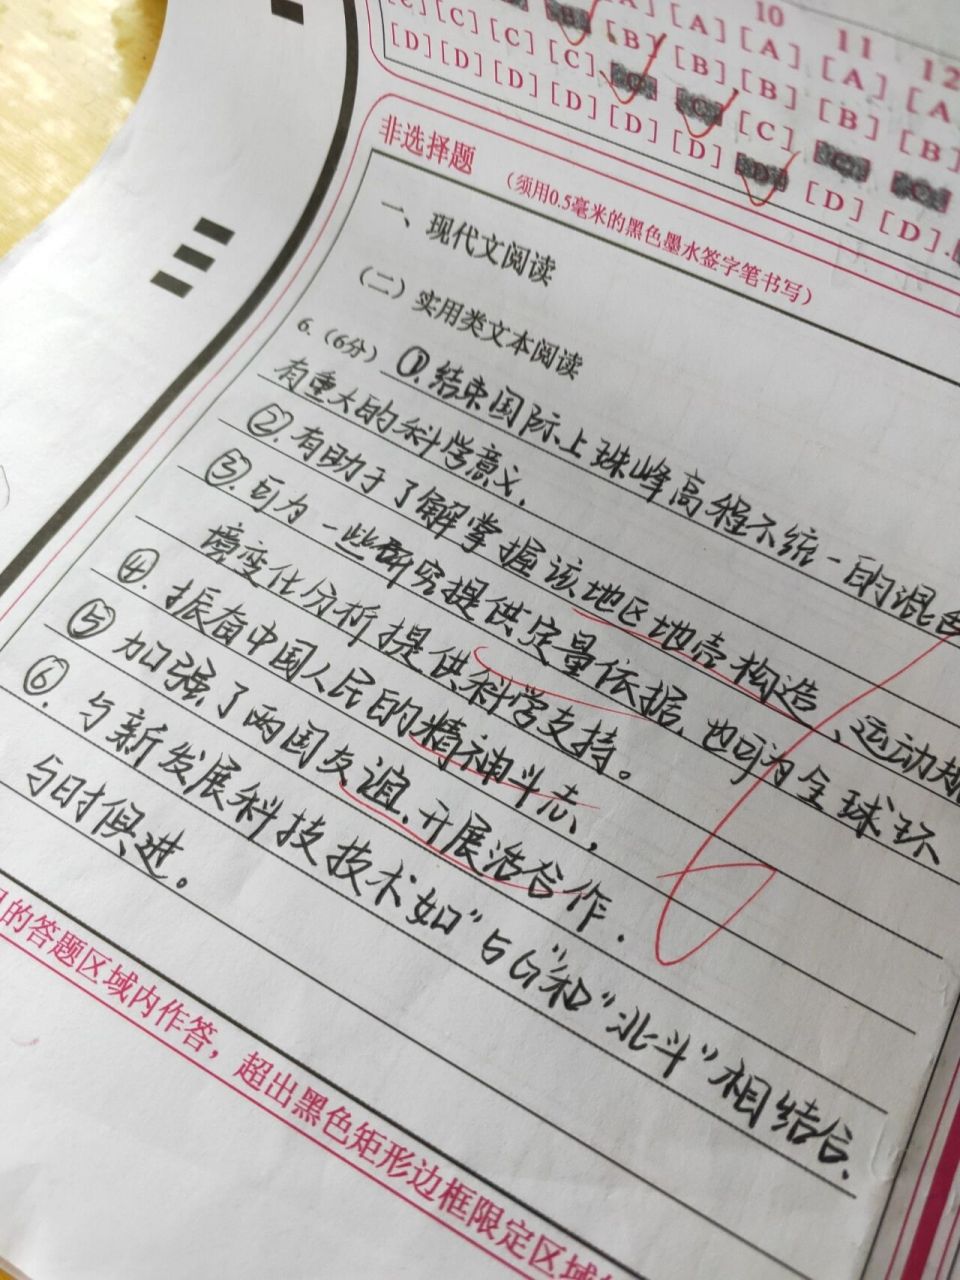 10 11 12
[C] [C] [B] [A] [A] [A] [A
[D] [D] [C] [C] [B] [B] [B] [B]
[D] [D] [D] [C] [C] [C] [C] [C]
[D] [D] [D] [D]
非选择题 (须用0.5毫米的黑色墨水签字笔书写)
一、现代文阅读
(二)实用类文本阅读
6.(6分) ①.结束国际上珠峰高程不统一的混
有重大的科学意义.
②.有助于了解掌握该地区地壳构造、运动规
③.可为一些研究提供定量依据,也可为全球环
境变化分析提供科学支持。
④.振奋中国人民的精神斗志,
⑤加强了两国友谊.开展活合作.
⑥.与新发展科技技术如"5G"和"北斗"相结合.
与时俱进。
的答题区域内作答,超出黑色矩形边框限定区域